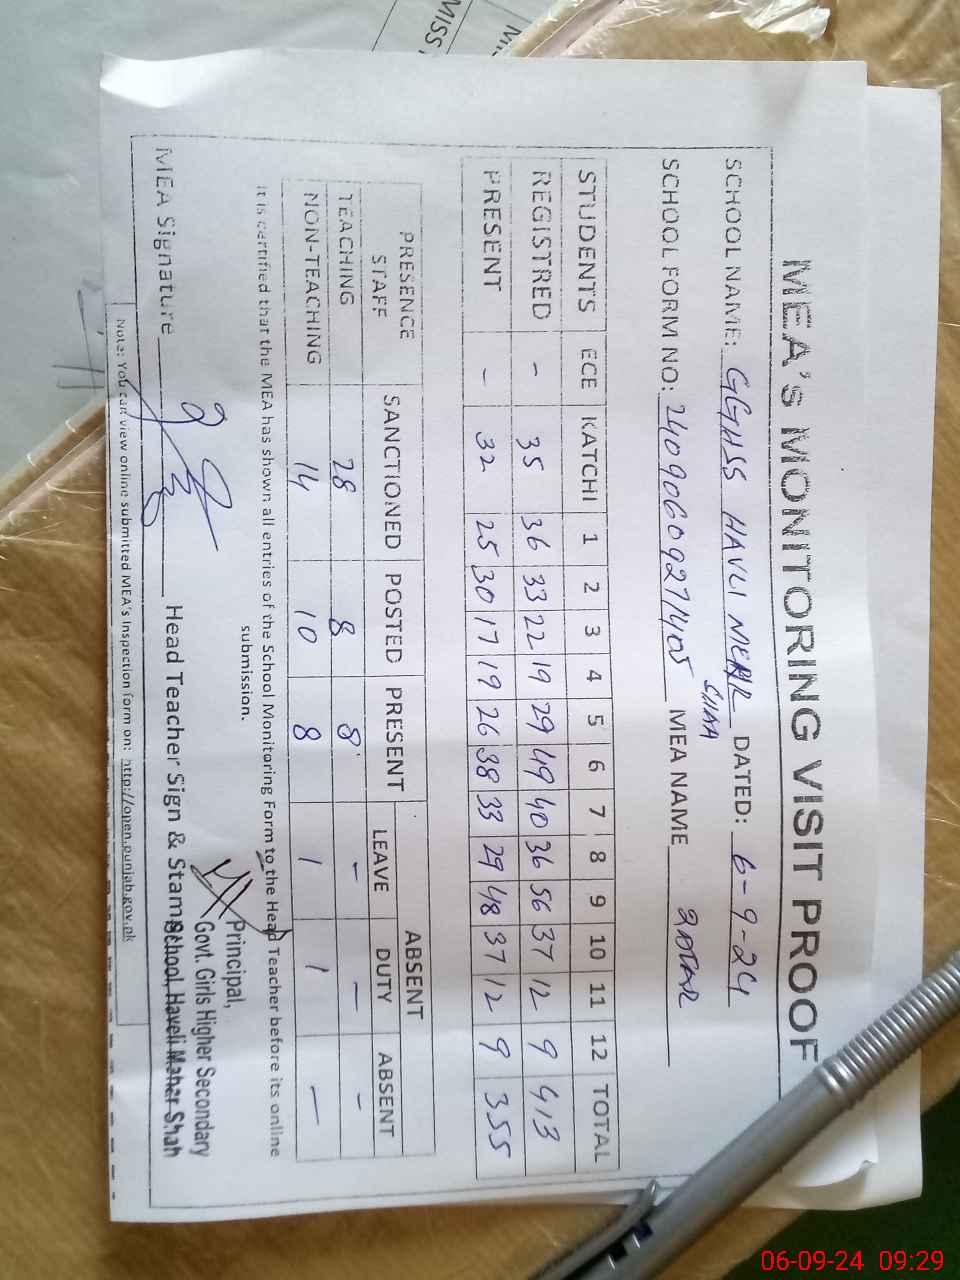 MEA'S MONITORING VISIT PROOF
SCHOOL NAME: GGHSS HAVLI MEHR SHAH DATED: 6-9-24
SCHOOL FORM NO: MEA NAME
STUDENTS ECE KATCHI 1 2 3 4 5 6 7 8 9 10 11 12 TOTAL
REGISTRED - 35 36 33 22 19 29 49 40 36 56 37 12 9 413
PRESENT - 32 25 30 17 19 26 38 33 29 48 37 12 9 355
PRESENCE STAFF SANCTIONED POSTED PRESENT ABSENT
LEAVE DUTY ABSENT
TEACHING 28 8 8 - - -
NON-TEACHING 14 10 8 1 1 -
It is certified that the MEA has shown all entries of the School Monitoring Form to the Head Teacher before its online
submission.
Principal,
Govt. Girls Higher Secondary
School, Haveli Maher Shah
MEA Signature Head Teacher Sign & Stamp
Note: You can view online submitted MEA's Inspection form on: http://open.punjab.gov.pk
MISS
06-09-24 09:29